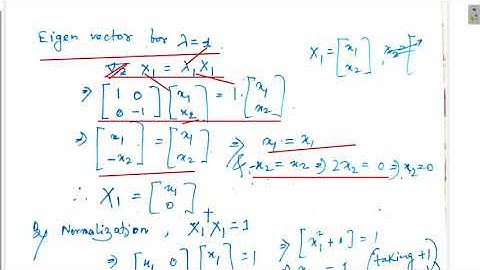 Eigen vector for λ=1
σz X1 = λ1X1
X1 = [x1 x2],
⇒ [1 0 0 -1] [x1 x2] = 1·[x1 x2]
⇒ [x1 -x2] = [x1 x2] ⇒ x1 = x1
& -x2 = x2 ⇒ 2x2 = 0 ⇒ x2=0
∴ X1 = [x1 0]
By Normalization, X1†X1=1
⇒ [x1 0] [x1 = 1 ⇒ [x1² + 0] = 1
(taking +1)